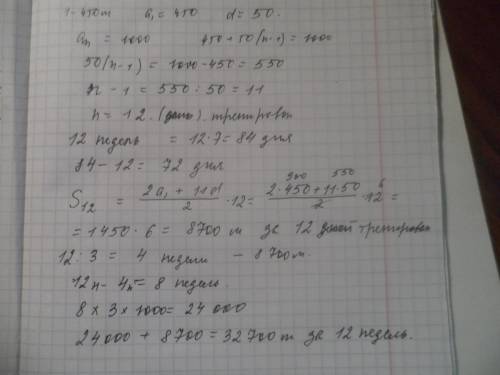 1 - 450 m   a₁ = 450   d = 50.
aₙ = 1000   450 + 50(n-1) = 1000
50(n-1) = 1000 - 450 = 550
n - 1 = 550 : 50 = 11
n = 12. тренировок
12 недель = 12·7 = 84 дня
84 - 12 = 72 дня
S₁₂ = (2a₁ + 11d)/2 · 12 = (2·450 + 11·50)/2 · 12 =
= 1450 · 6 = 8700 м за 12 дней тренировок
12 : 3 = 4 недели - 8700 м.
12н - 4н = 8 недель.
8 x 3 x 1000 = 24 000
24000 + 8700 = 32700 m за 12 недель.